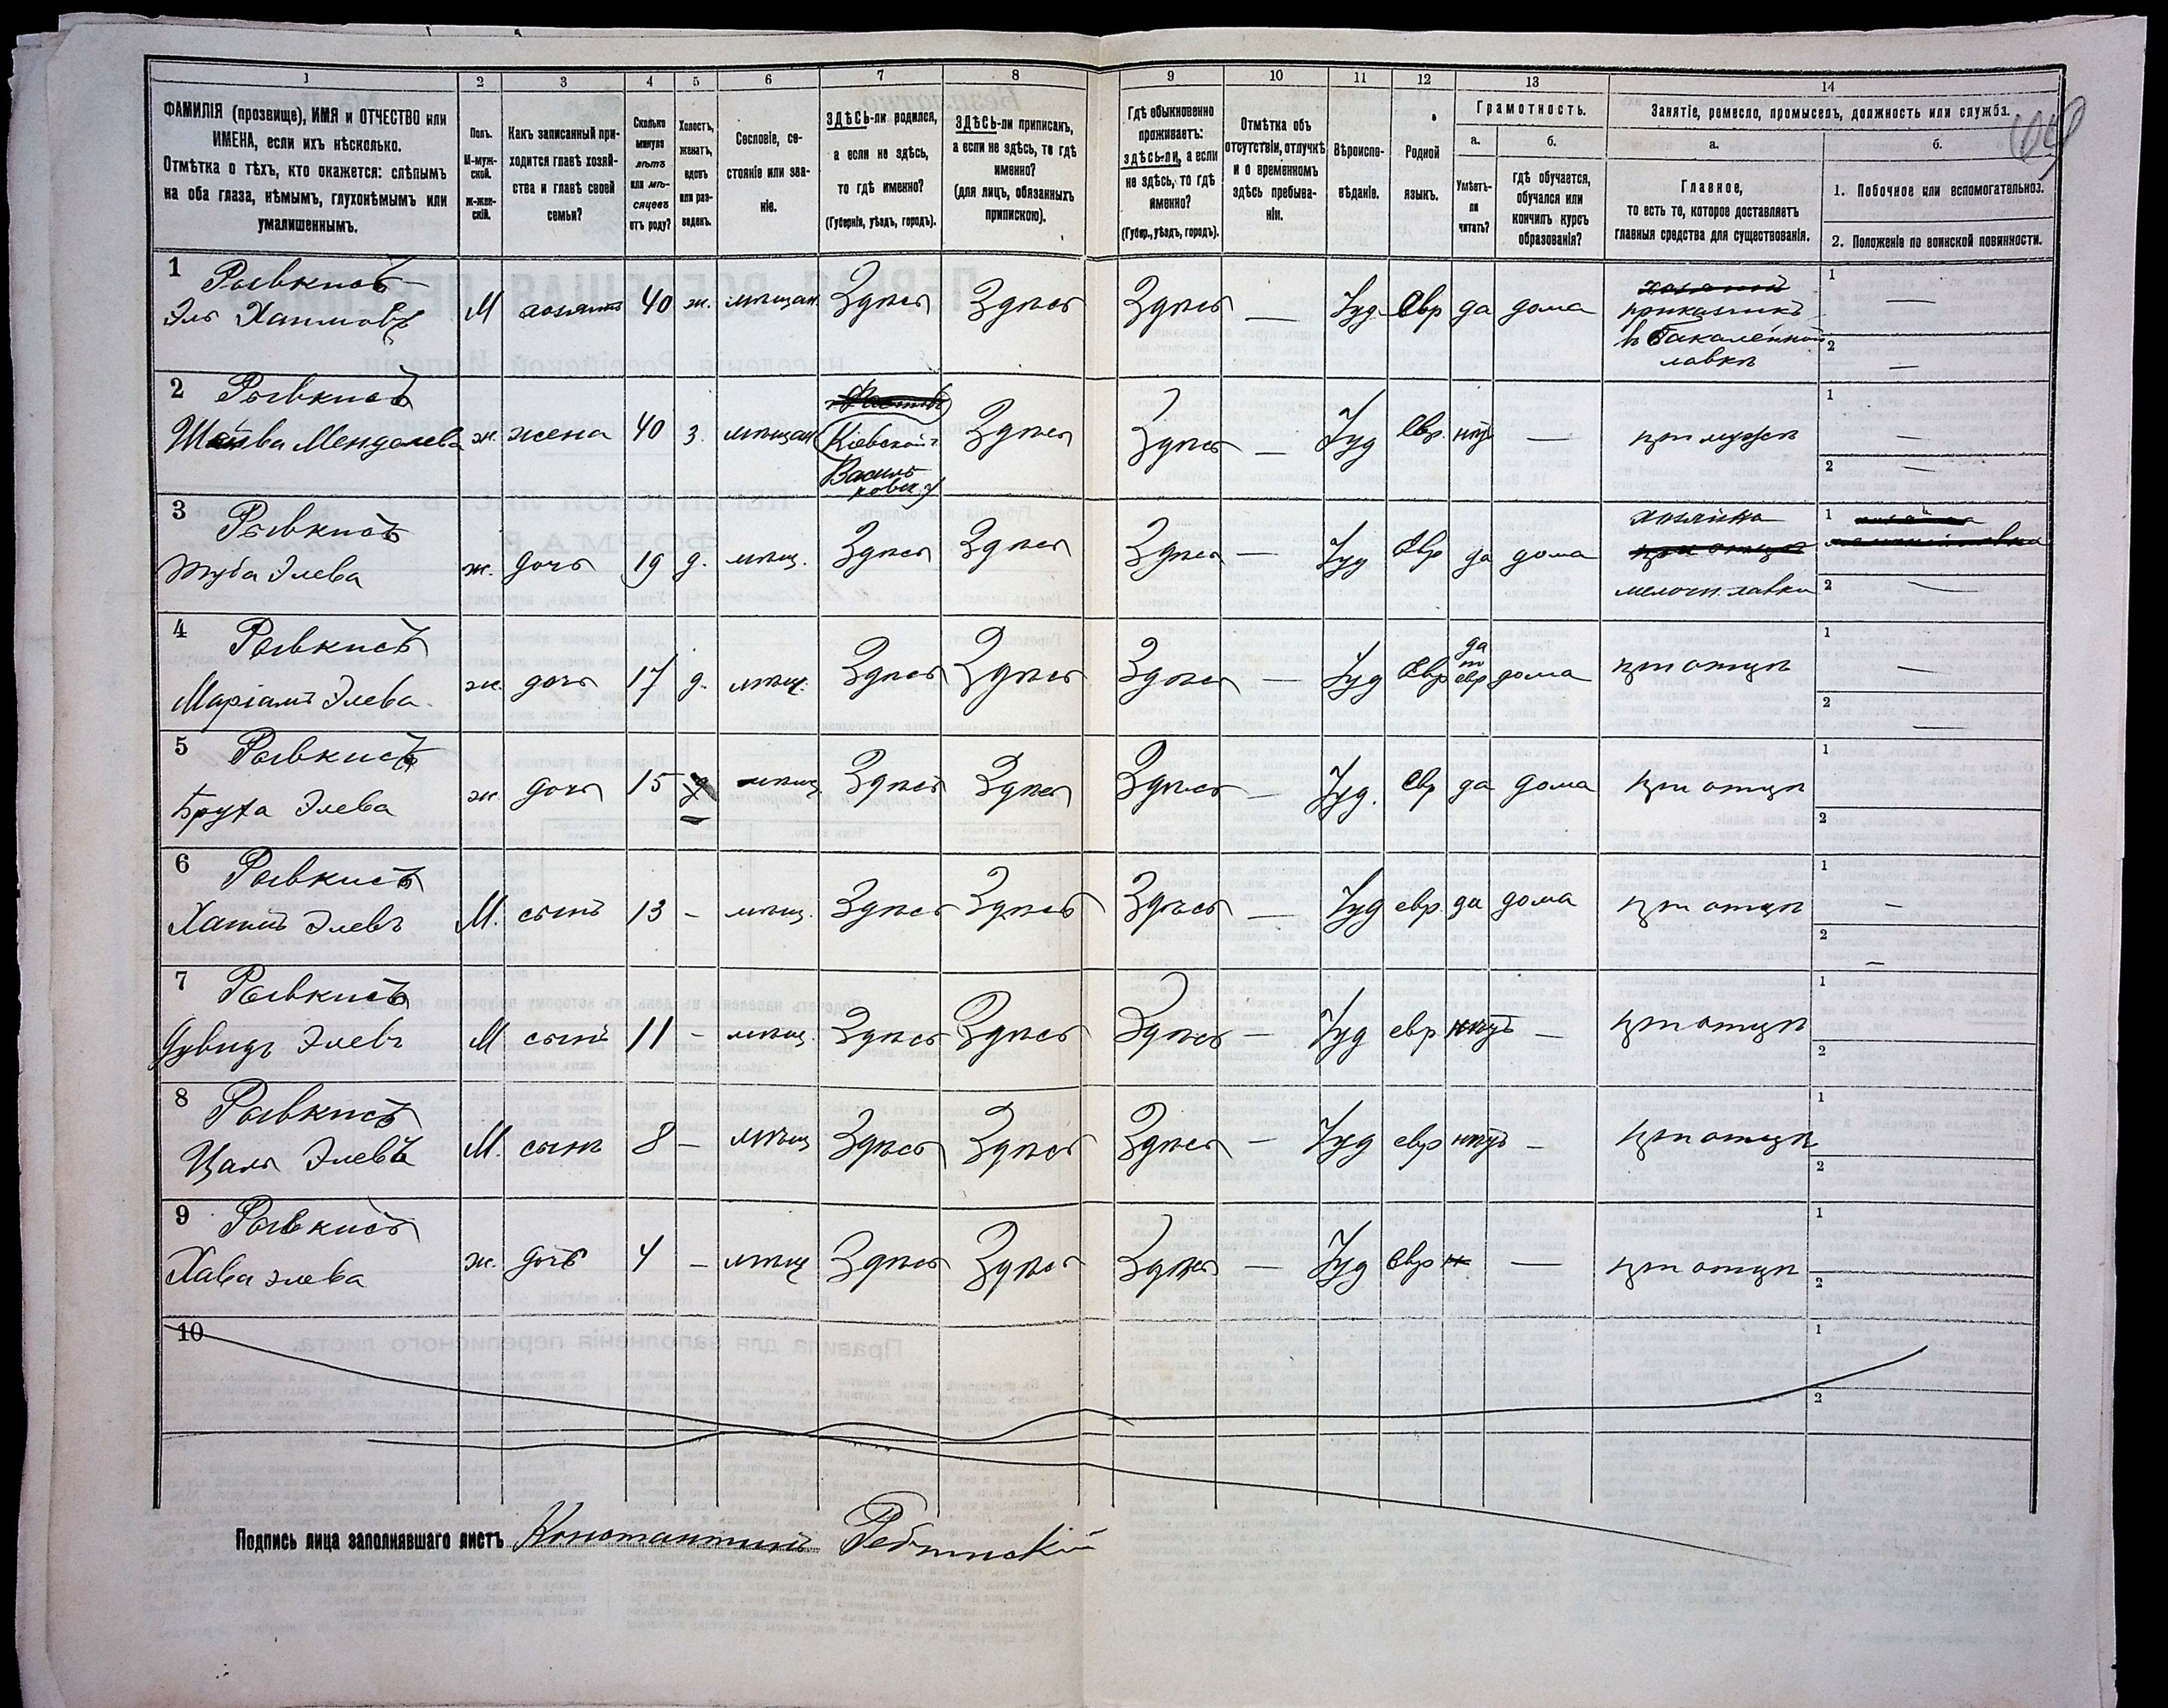 1 2 3 4 5 6 7 8 9 10 11 12 13 14
ФАМИЛІЯ (прозвище), ИМЯ и ОТЧЕСТВО или
ИМЕНА, если ихъ нѣсколько.
Отмѣтка о тѣхъ, кто окажется: слѣпымъ
на оба глаза, нѣмымъ, глухонѣмымъ или
умалишеннымъ.
Полъ.
М-муж-
ской.
Ж-жен-
скій.
Какъ записанный при-
ходится главѣ хозяй-
ства и главѣ своей
семьи?
Сколько
минуло
лѣтъ
или мѣ-
сяцевъ
отъ роду?
Холостъ,
женатъ,
вдовъ
или раз-
веденъ.
Сословіе, со-
стояніе или зва-
ніе.
ЗДѢСЬ-ли родился,
а если не здѣсь,
то гдѣ именно?
(Губернія, уѣздъ, городъ).
ЗДѢСЬ-ли приписанъ,
а если не здѣсь, то гдѣ
именно?
(для лицъ, обязанныхъ
припискою).
Гдѣ обыкновенно
проживаетъ:
здѣсь-ли, а если
не здѣсь, то гдѣ
именно?
(Губер., уѣздъ, городъ).
Отмѣтка объ
отсутствіи, отлучкѣ
и о временномъ
здѣсь пребыва-
ніи.
Вѣроиспо-
вѣданіе.
Родной
языкъ.
Грамотность.
а.
Умѣетъ-
ли
читать?
б.
гдѣ обучается,
обучался или
кончилъ курсъ
образованія?
Занятіе, ремесло, промыселъ, должность или служба.
а.
Главное,
то есть то, которое доставляетъ
главныя средства для существованія.
б.
1. Побочное или вспомогательное.
2. Положеніе по воинской повинности.
1 Рывкисъ
Эль Хаимовъ М хозяинъ 40 ж. мѣщан. Здѣсь Здѣсь Здѣсь — Іуд. Евр да дома
приказчикъ
въ бакалейной
лавкѣ
1 —
2 —
2 Рывкисъ
Менделева ж. жена 40 з. мѣщан
Кіевской г
Василь
ковск. у
Здѣсь Здѣсь — Іуд Евр. нѣтъ — при мужѣ
1 —
2 —
3 Рывкисъ
Туба Элева ж. дочь 19 д. мѣщ. Здѣсь Здѣсь Здѣсь — Іуд Евр да дома
хозяйка
мелочн. лавки
1
2 —
4 Рывкисъ
Маріамъ Элева ж. дочь 17 д. мѣщ. Здѣсь Здѣсь Здѣсь — Іуд Евр да
евр дома при отцѣ
1 —
2 —
5 Рывкисъ
Бруха Элева ж дочь 15 — мѣщ Здѣсь Здѣсь Здѣсь — Іуд. Евр да дома при отцѣ
1
2
6 Рывкисъ
Хаимъ Элевъ М. сынъ 13 — мѣщ. Здѣсь Здѣсь Здѣсь — Іуд евр. да дома при отцѣ
1 —
2 —
7 Рывкисъ
Дувидъ Элевъ М сынъ 11 — мѣщ. Здѣсь Здѣсь Здѣсь — Іуд евр нѣтъ — при отцѣ
1
2
8 Рывкисъ
Цаль Элевъ М. сынъ 8 — мѣщ Здѣсь Здѣсь Здѣсь — Іуд евр нѣтъ — при отцѣ
1
2
9 Рывкисъ
Хава Элева ж. дочь 4 — мѣщ Здѣсь Здѣсь Здѣсь — Іуд Евр н — при отцѣ
1
2
10
1
2
Подпись лица заполнявшаго листъ Константинъ